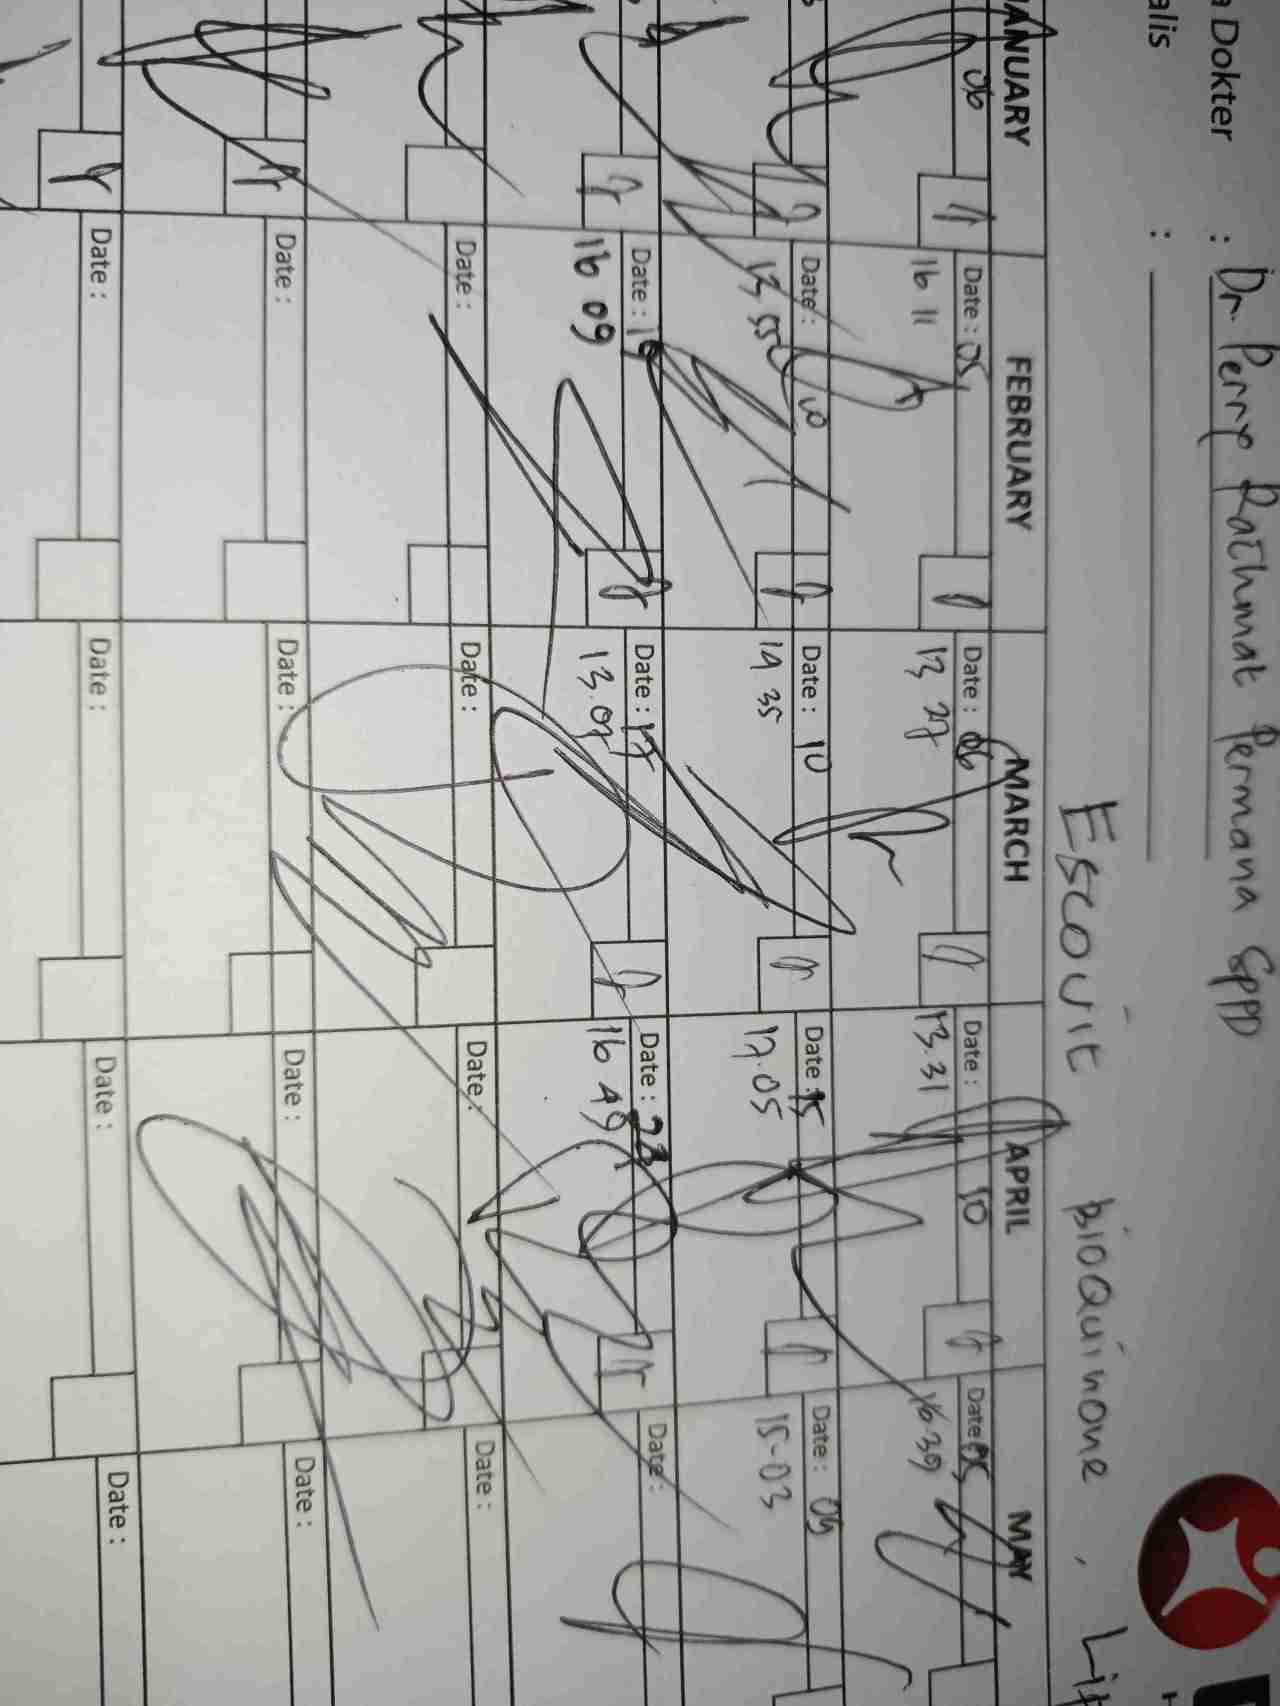 Dokter : Dr. Perry Rachmat Permana SPPD
alis :
Escovit BIOQUINONE, Li
JANUARY FEBRUARY MARCH APRIL MAY
06 Date : 05 Date : 06 Date : 10 Date : 05
16 11 13 27 13.31 16.39
Date : 10 Date : 10 Date : 15 Date : 09
13 55 14 35 17.05 15-03
Date : 16 Date : 17 Date : 23 Date :
16 09 13.07 16 49
Date : Date : Date : Date :
Date : Date : Date : Date :
Date : Date : Date : Date :